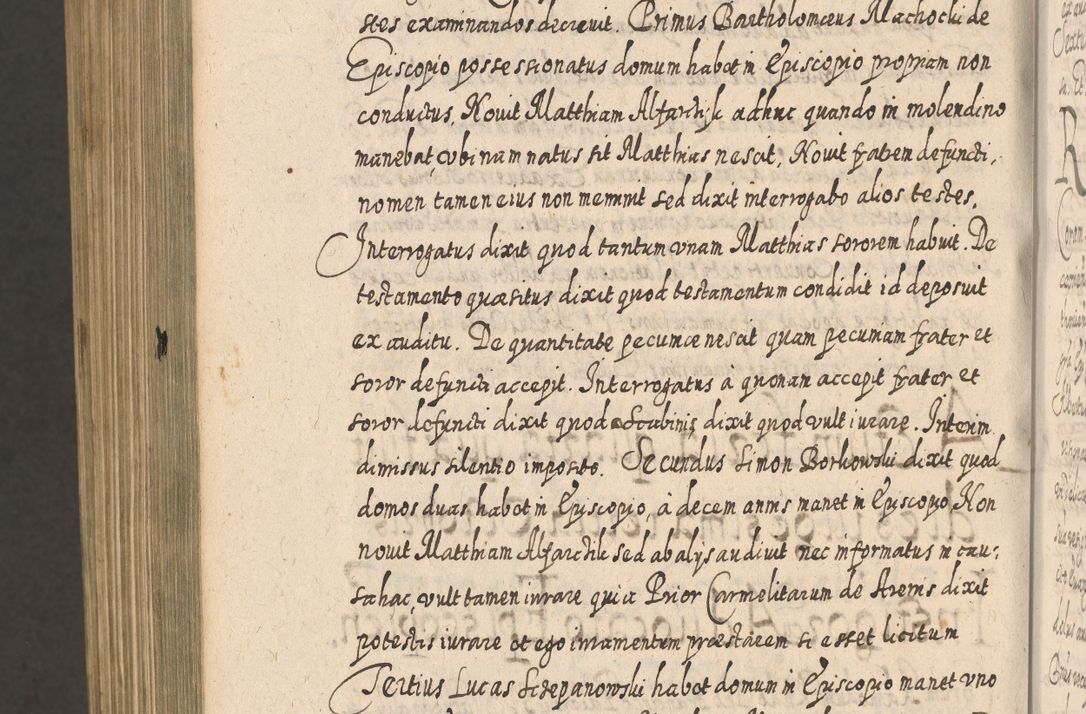 stes examinandos decrevit. Primus Bartholomæus Machocki de
Episcopio possessionatus domum habet in Episcopio propriam non
conductus, Novit Matthiam Alfarcik adhuc quando in molendino
manebat, ubi nam natus sit Matthias nescit, Novit fratem defuncti,
nomen tamen eius non meminit sed dixit interrogabo alios testes.
Interrogatus dixit quod tantum unam Matthias sororem habuit. De
testamento quæsitus dixit quod testamentum condidit id deposuit
ex auditu. De quantitate pecuniæ nescit quam pecuniam frater et
soror defuncti accepit. Interrogatus à quonam accepit frater et
soror defuncti dixit quod a Scabinis dixit quod vult iurare. Interim
dimissus silentio imposito. Secundus Simon Borkowski dixit quod
domos duas habet in Episcopio, à decem annis manet in Episcopio, Non
novit Matthiam Alfarcik sed ab alijs audivit nec informatus in cau-
sa hac, vult tamen iurare quia Prior Carmelitarum de Arenis dixit
potestis iurare et ego iuramentum præstarem si esset licitum
Tertius Lucas Sczepanowski habet domum in Episcopio manet uno